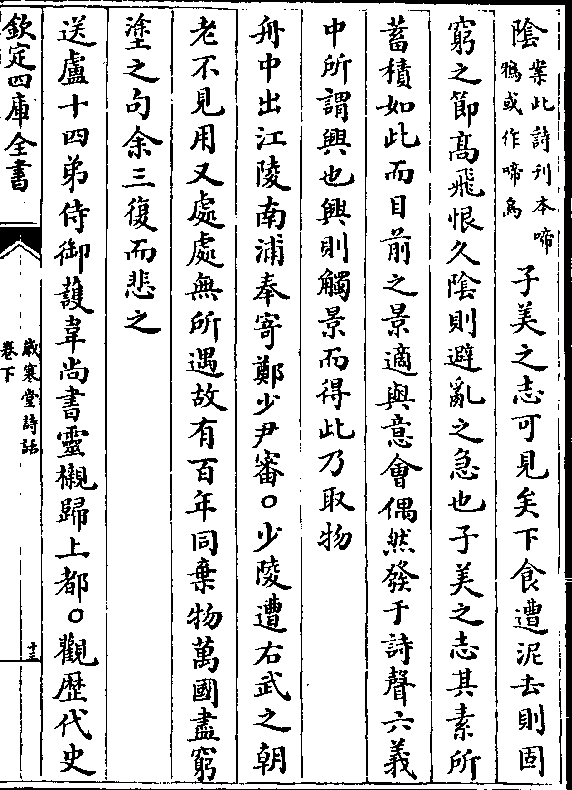 陰案此詩刊本啼
鵶或作啼烏
子美之志可見矣下食遭泥去則固
窮之節高飛恨久陰則避亂之急也子美之志其素所
蓄積如此而目前之景適與意會偶然發于詩聲六義
中所謂興也興則觸景而得此乃取物
舟中出江陵南浦奉寄鄭少尹審○少陵遭右武之朝
老不見用又處處無所遇故有百年同棄物萬國盡窮
塗之句余三復而悲之
送盧十四弟侍御護韋尚書靈櫬歸上都○觀歷代史
欽定四庫全書
歲寒堂詩話
卷下
十三